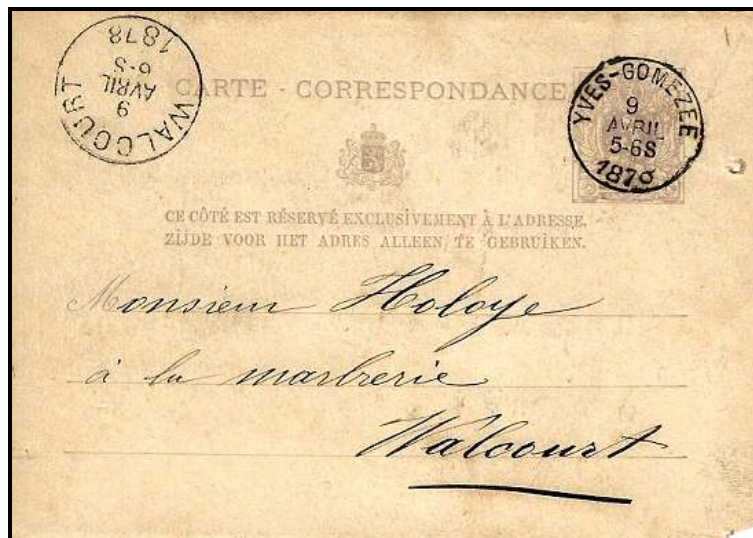 WALCOURT
9
AVRIL
6-S
1878
CARTE - CORRESPONDANCE
YVES-GOMEZEE
9
AVRIL
5-6S
1878
CE CÔTÉ EST RÉSERVÉ EXCLUSIVEMENT À L'ADRESSE.
ZIJDE VOOR HET ADRES ALLEEN TE GEBRUIKEN.
Monsieur Holoye
à la marbrerie
Walcourt